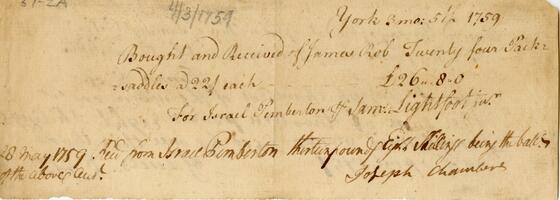 51-2A
4/3/1759
York 3 mo: 5th 1759
Bought and Received of James Rob Twenty four Pack-
-saddles a 22/ each - - - £26 - 8 - 0
For Israel Pemberton Saml. Lightfoot Junr
28 May 1759 Recd from Israel Pemberton thirteen pounds Eight Shillings being the balle
of the above Acct.
Joseph Chambers